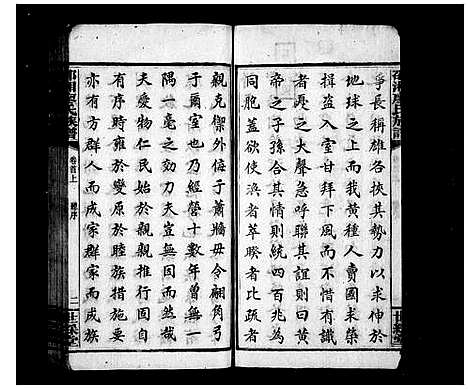 爭長稱雄各挾其勢力以求伸於
地球之上而我黃種人賣國求榮
揖盜入室甘拜下風而不惜有識
者以之大聲急呼聯其誼則曰黃
帝之子孫合其情則統四百兆為
同胞蓋欲使渙者萃睽者比疏者
親克禦外侮于蕭牆毋令翩角弓
于爾室也乃經營十數年曾無一
隅一毫之効力夫豈無因而然哉
夫愛物仁民始於親親推行固自
有序時雍於變原於睦族措施要
亦有方群人而成家群家而成族
卷首上
總序
二